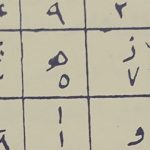 ٢ ٩
ز ه
٧ ٥
ا
و ١